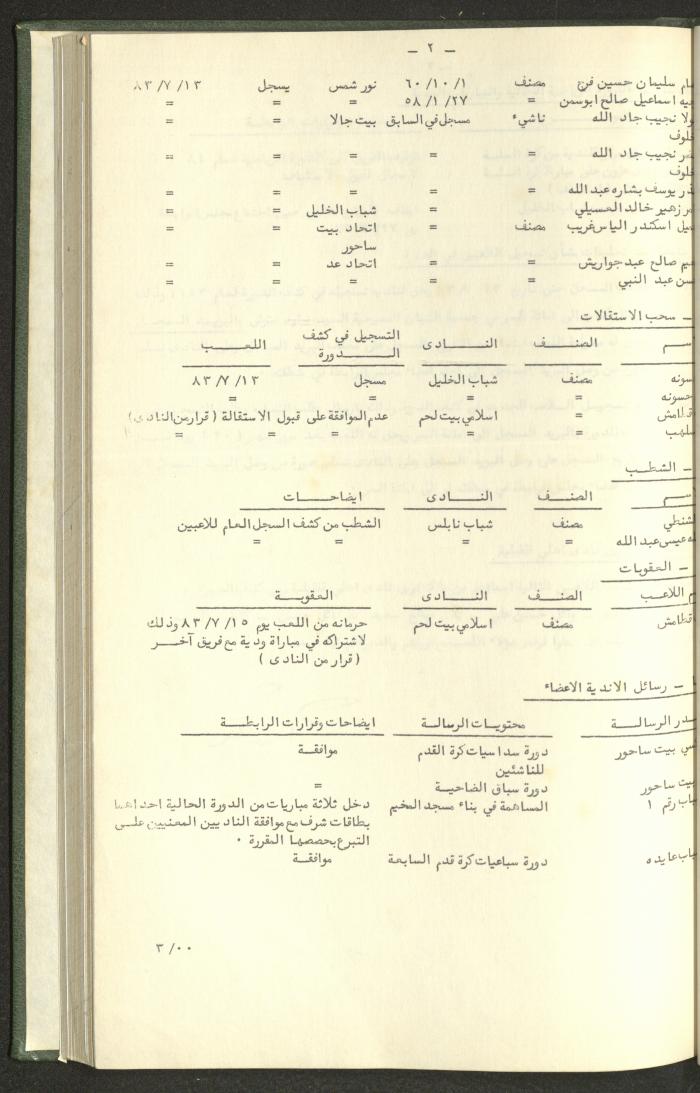 — ٢ —
سليمان حسين فرج مصنف ٦٠/١٠/١ نور شمس يسجل ٨٣/٧/١٣
اسماعيل صالح ابوسمن = ٥٨/١/٢٧ = = =
نجيب جاد الله ناشيء مسجل في السابق بيت جالا = =
نجيب جاد الله = = = = =
يوسف بشاره عبد الله = = = = =
زهير خالد العسيلي = = شباب الخليل = =
اسكندر الياس غريب مصنف = اتحاد بيت = =
ساحور
صالح عبد جواريش = = اتحاد عد = =
عبد النبي = = = = =
— سحب الاستقالات
الصنف النادى التسجيل في كشف الدورة اللعب
مصنف شباب الخليل مسجل ٨٣/٧/١٣
حسونه = = = =
= اسلامي بيت لحم عدم الموافقة على قبول الاستقالة (قرار من النادى)
= = = = =
— الشطب
الصنف النادى ايضاحات
مصنف شباب نابلس الشطب من كشف السجل العام للاعبين
عيسى عبد الله = = = =
— العقوبات
اللاعب الصنف النادى العقوبة
مصنف اسلامي بيت لحم حرمانه من اللعب يوم ٨٣/٧/١٥ وذلك
لاشتراكه في مباراة ودية مع فريق آخر
(قرار من النادى)
— رسائل الاندية الاعضاء
الرسالة محتويات الرسالة ايضاحات وقرارات الرابطة
بيت ساحور دورة سداسيات كرة القدم موافقة
للناشئين
بيت ساحور دورة سباق الضاحية =
رقم ١ المساهمة في بناء مسجد المخيم دخل ثلاثة مباريات من الدورة الحالية احداهما
بطاقات شرف مع موافقة الناديين المعنيين على
التبرع بحصصها المقررة ٠
عايده دورة سباعيات كرة قدم السابعة موافقة
٣/٠٠